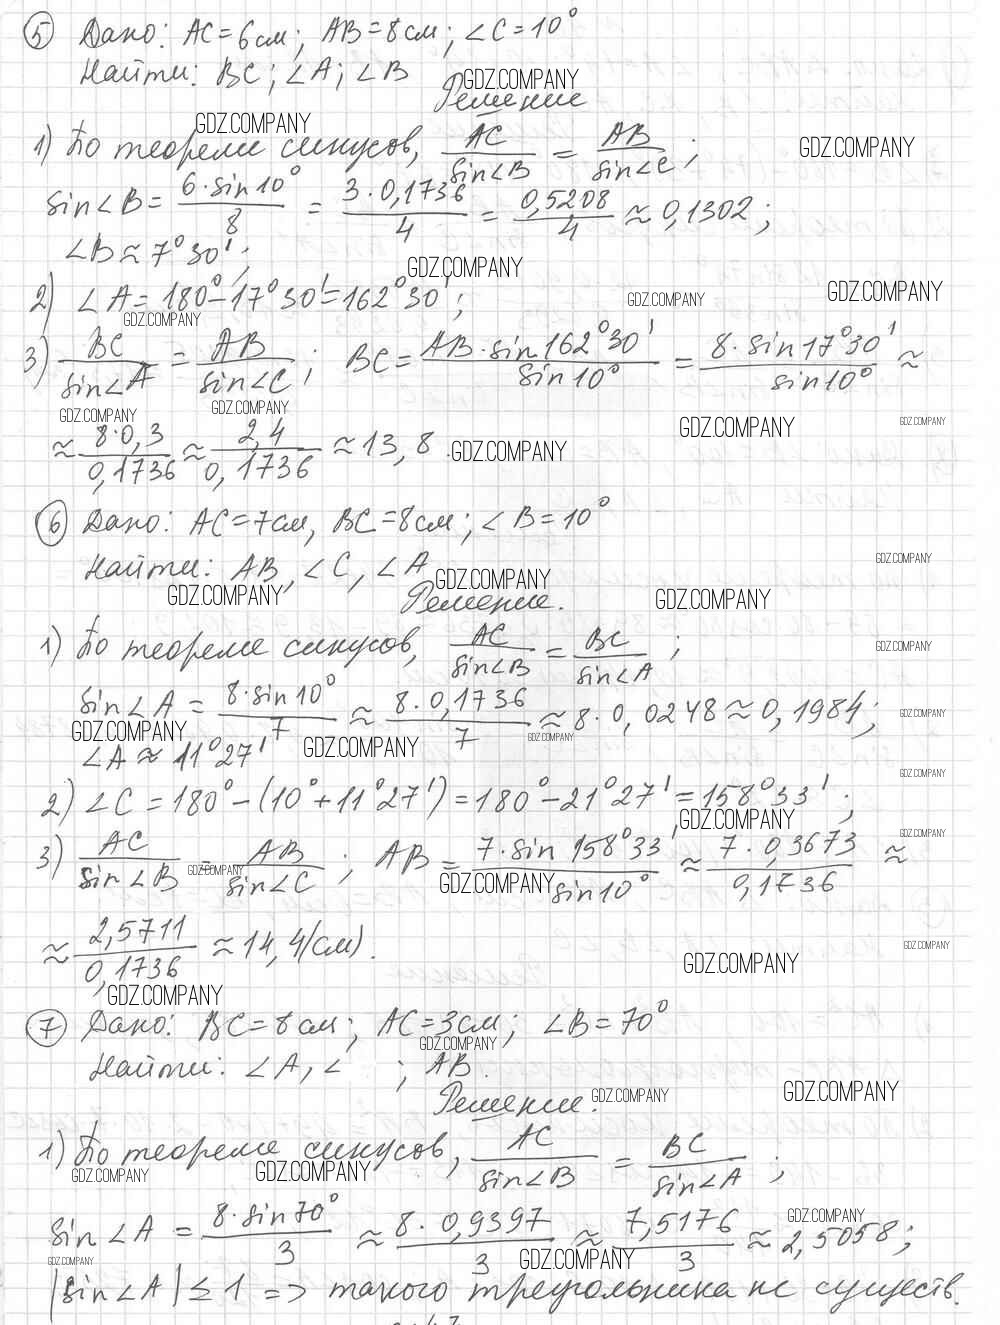 ⑤ Дано: AC=6см; AB=8см; ∠C=10°
Найти: BC; ∠A; ∠B
GDZ.COMPANY
Решение
GDZ.COMPANY
1) По теореме синусов, AC/sin∠B = AB/sin∠C;
GDZ.COMPANY
sin∠B = 6·sin10°/8 = 3·0,1736/4 = 0,5208/4 ≈ 0,1302;
∠B ≈ 7°30';
GDZ.COMPANY
2) ∠A = 180°-17°30'=162°30';
GDZ.COMPANY GDZ.COMPANY
GDZ.COMPANY
3) BC/sin∠A = AB/sin∠C; BC = AB·sin162°30'/sin10° = 8·sin17°30'/sin10° ≈
GDZ.COMPANY GDZ.COMPANY GDZ.COMPANY GDZ.COMPANY
≈ 8·0,3/0,1736 ≈ 2,4/0,1736 ≈ 13,8.
GDZ.COMPANY
⑥ Дано: AC=7см, BC=8см; ∠B=10°
Найти: AB, ∠C, ∠A
GDZ.COMPANY
GDZ.COMPANY GDZ.COMPANY
Решение.
GDZ.COMPANY
1) По теореме синусов, AC/sin∠B = BC/sin∠A;
GDZ.COMPANY
sin∠A = 8·sin10°/7 ≈ 8·0,1736/7 ≈ 8·0,0248 ≈ 0,1984;
GDZ.COMPANY GDZ.COMPANY GDZ.COMPANY
∠A ≈ 11°27'
GDZ.COMPANY
GDZ.COMPANY
2) ∠C = 180°-(10°+11°27')=180°-21°27'=158°33';
GDZ.COMPANY
GDZ.COMPANY
3) AC/sin∠B = AB/sin∠C; AB = 7·sin158°33'/sin10° ≈ 7·0,3673/0,1736 ≈
GDZ.COMPANY GDZ.COMPANY
≈ 2,5711/0,1736 ≈ 14,4(см).
GDZ.COMPANY
GDZ.COMPANY
GDZ.COMPANY
⑦ Дано: BC=8см; AC=3см; ∠B=70°
GDZ.COMPANY
Найти: ∠A, ∠ ; AB.
Решение.
GDZ.COMPANY GDZ.COMPANY
1) По теореме синусов, AC/sin∠B = BC/sin∠A;
GDZ.COMPANY GDZ.COMPANY
sin∠A = 8·sin70°/3 ≈ 8·0,9397/3 ≈ 7,5176/3 ≈ 2,5058;
GDZ.COMPANY
GDZ.COMPANY GDZ.COMPANY
|sin∠A| ≤ 1 => такого треугольника не существ.